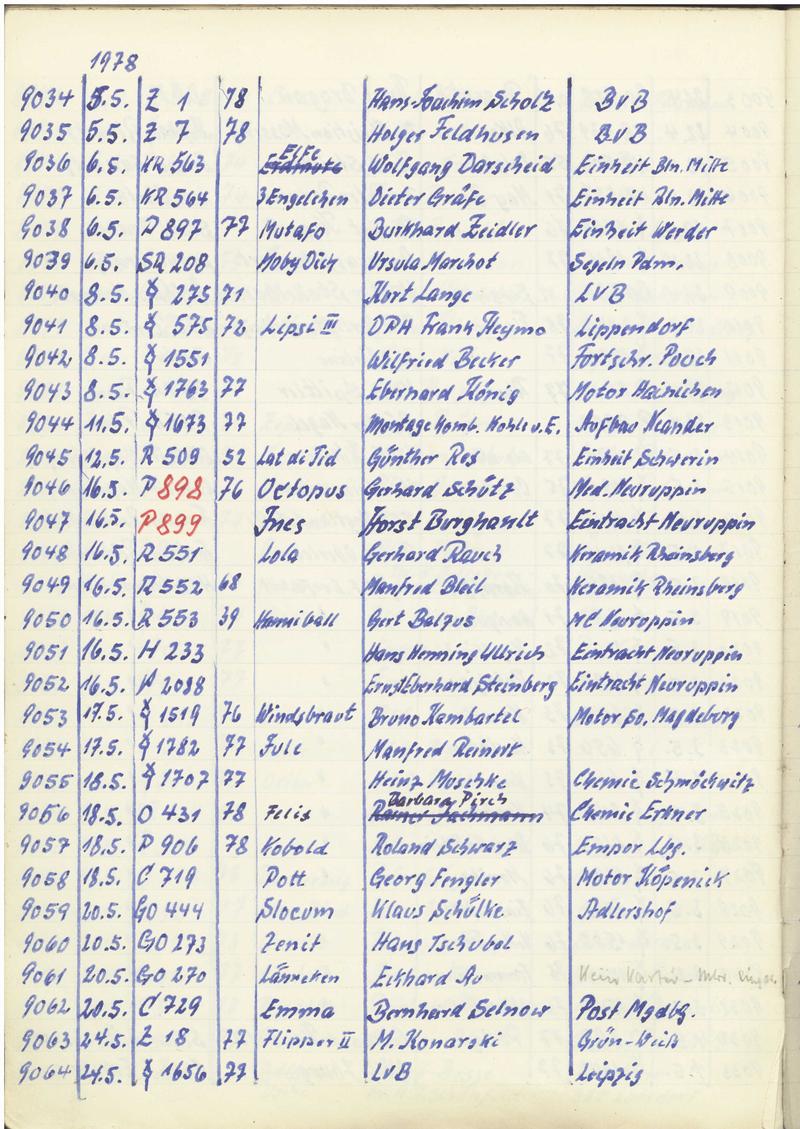 1978
9034 5.5. Z 1 78 Hans-Joachim Scholz BVB
9035 5.5. Z 7 78 Holger Feldhusen BVB
9036 6.5. KR 563 Elfe Wolfgang Darscheid Einheit Bln. Mitte
9037 6.5. KR 564 3 Engelchen Dieter Gräfe Einheit Bln. Mitte
9038 6.5. P 897 77 Mutafo Burkhard Zeidler Einheit Werder
9039 6.5. SR 208 Moby Dick Ursula Marchot Segeln Pdm.
9040 8.5. 275 71 Kurt Lange LVB
9041 8.5. 575 72 Lipsi III DPH Frank Heymo Lippendorf
9042 8.5. 1551 Wilfried Becker Fortschr. Pouch
9043 8.5. 1763 77 Eberhard König Motor Hainichen
9044 11.5. 1673 77 Montage Komb. Kohle u. E. Aufbau Neander
9045 12.5. R 509 52 Lat di Tid Günther Res Einheit Schwerin
9046 16.5. P 898 76 Octopus Gerhard Schütz Med. Neuruppin
9047 16.5. P 899 Ines Horst Burghardt Eintracht Neuruppin
9048 16.5. R 551 Lola Gerhard Rauch Keramik Rheinsberg
9049 16.5. R 552 68 Manfred Bleil Keramik Rheinsberg
9050 16.5. R 553 39 Hanniball Gert Balzus MC Neuruppin
9051 16.5. H 233 Hans Henning Ullrich Eintracht Neuruppin
9052 16.5. 2088 Ernst Eberhard Steinberg Eintracht Neuruppin
9053 17.5. 1519 76 Windsbraut Bruno Kambartel Motor So. Magdeburg
9054 17.5. 1782 77 Jule Manfred Reinert
9055 18.5. 1707 77 Heinz Moschke Chemie Schmöckwitz
9056 18.5. O 431 78 Felis Barbara Pirch Chemie Erkner
9057 18.5. P 906 78 Kobold Roland Schwarz Empor Lbg.
9058 18.5. C 719 Pott Georg Fengler Motor Köpenick
9059 20.5. GO 444 Slocum Klaus Schülke Adlershof
9060 20.5. GO 273 Zenit Hans Tschubel
9061 20.5. GO 270 Länneken Eckhard Au
9062 20.5. C 729 Emma Bernhard Selnow Post Mgdbg.
9063 24.5. Z 18 77 Flipper II M. Konarski Grün-Weiß
9064 24.5. 1656 77 LVB Leipzig